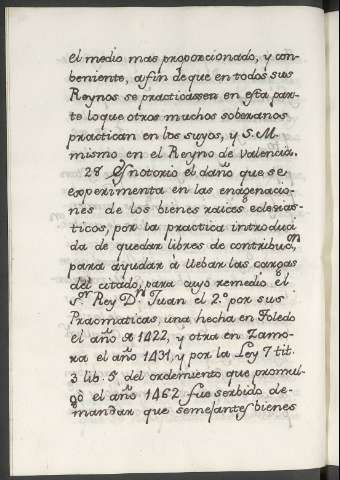 el medio mas proporcionado, y con-
beniente, afin de que en todos sus
Reynos se practicassen en esta par-
te lo que otros muchos soberanos
practican en los suyos, y S. M.
mismo en el Reyno de Valencia.
28 Es notorio el daño que se
experimenta en las enagenacio-
nes de los bienes raices eclesias-
ticos, por la practica introduci
da de quedar libres de contribuon
para ayudar à llebar las cargas
del citado, para cuyo remedio el
Sor Rey Dn Juan el 2.º por sus
Pracmaticas, una hecha en Toledo
el año de 1422, y otra en Zamo-
ra el año 1431, y por la Ley 7 tit.
3 lib. 5º del ordemiento que promul-
gò el año 1462 fue serbido de-
mandar que semejantes bienes